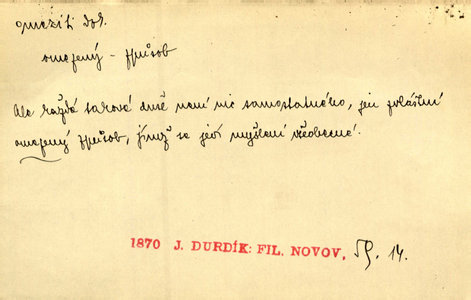 omeziti dok.
omezený – způsob
Ale každá taková duše není nic samostatného, jen zvláštní
omezený způsob, jímž se jeví myšlení všeobecné.
1870 J. DURDÍK: FIL. NOVOV, 59. 14.